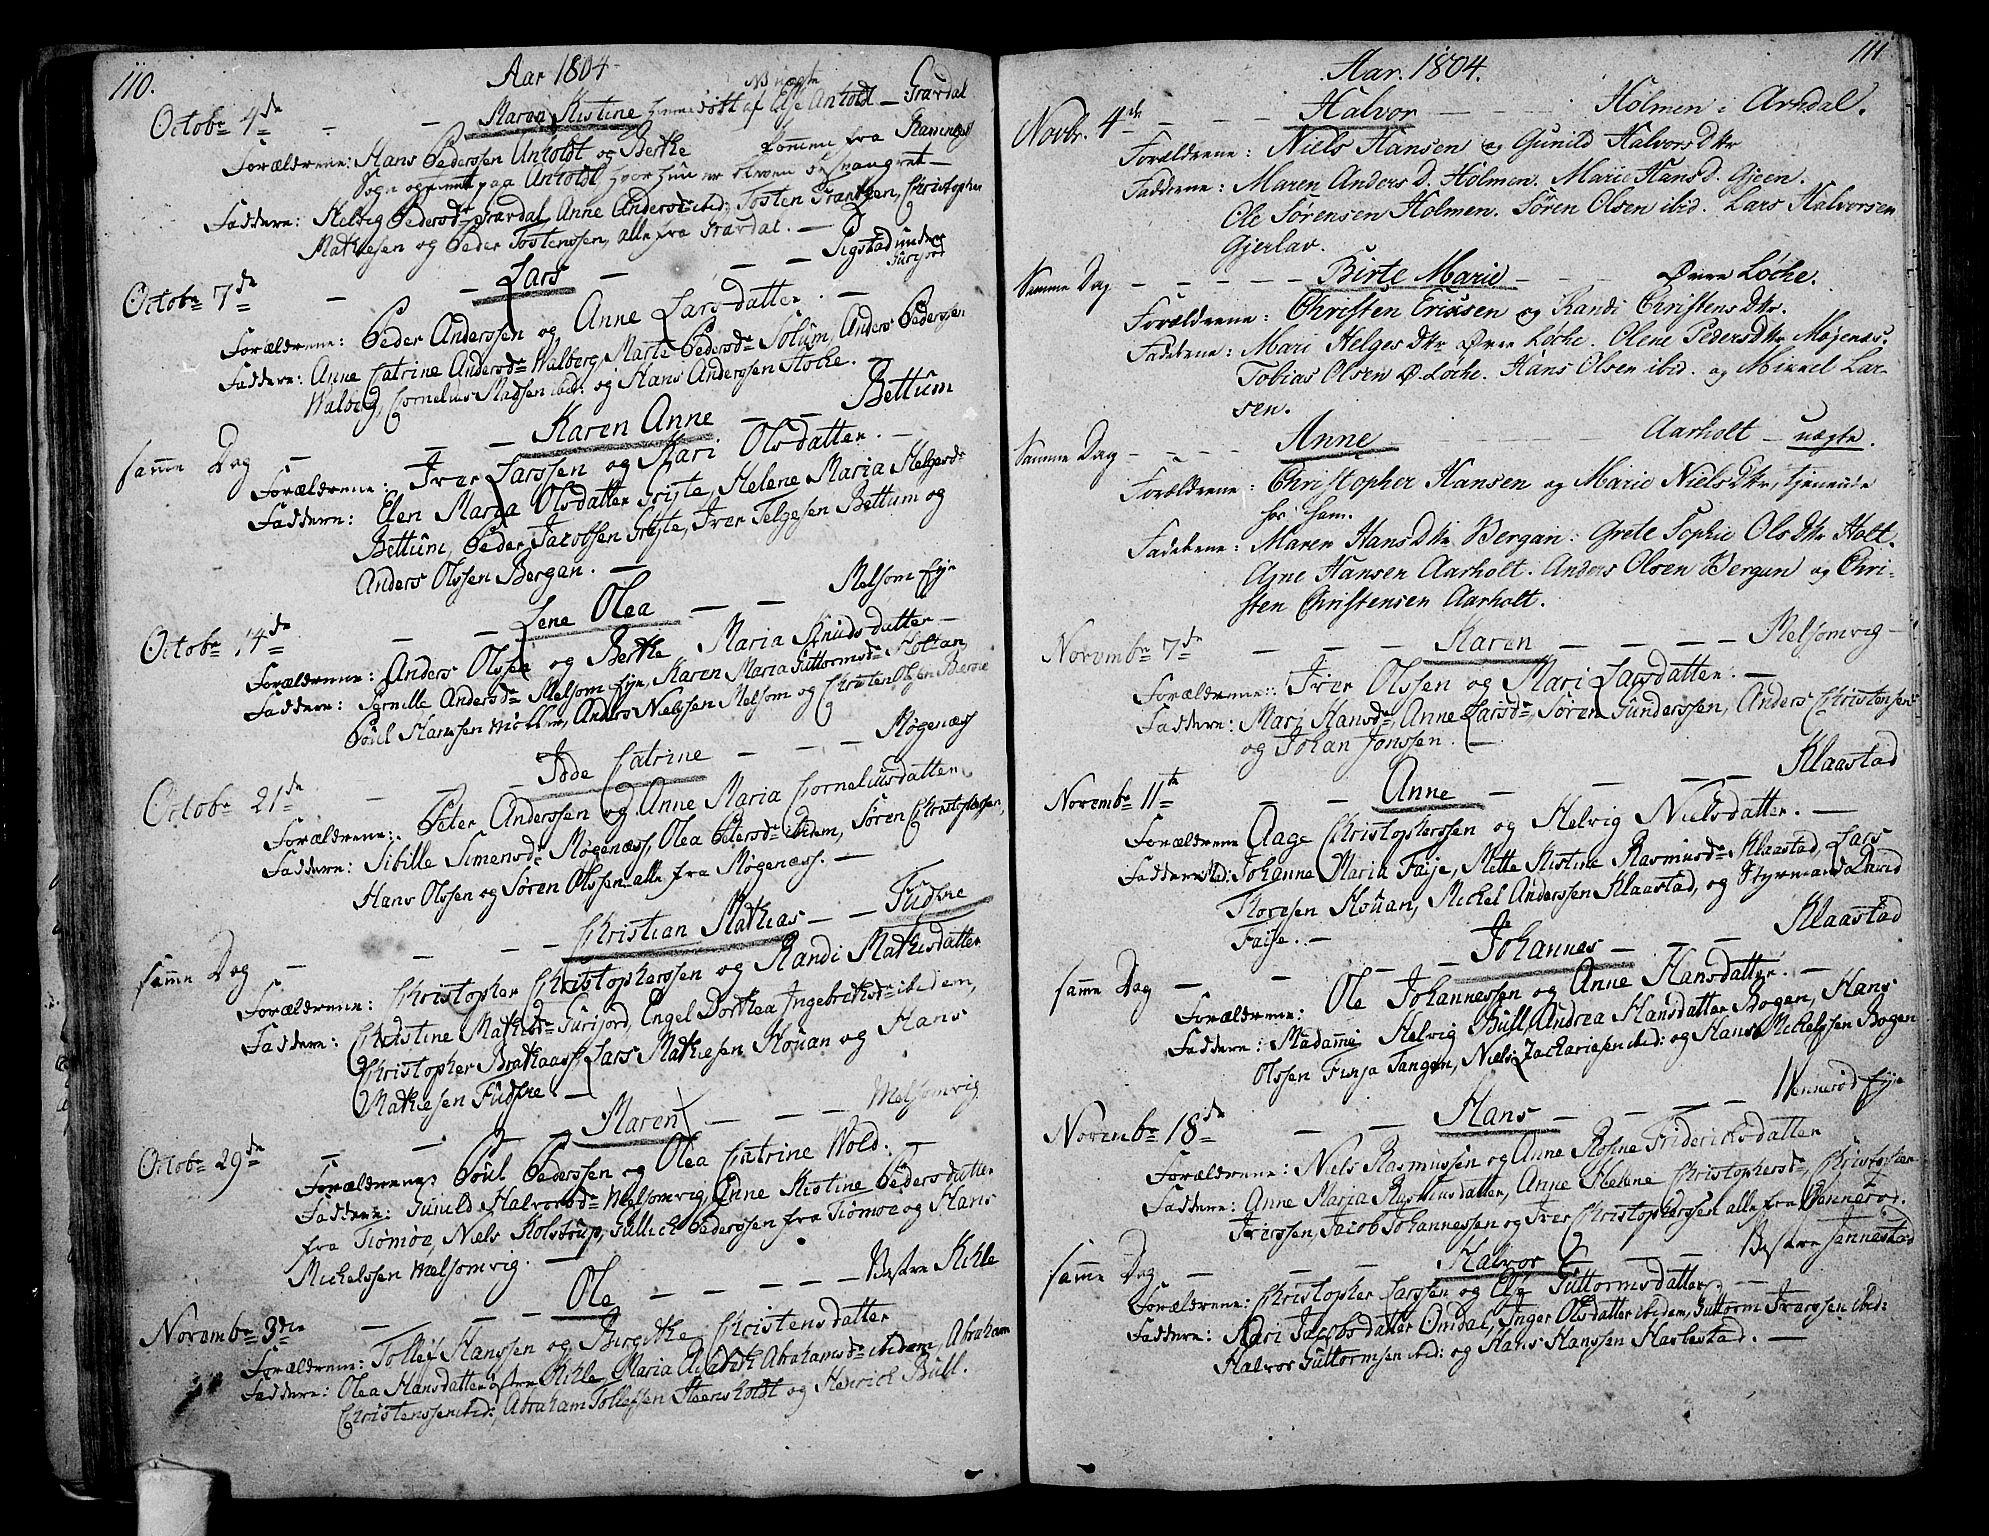 110.
Aar 1804
NB uægte
Octobr 4de - - Maren Kistine hennes dott af Else Anholdt - Gravdal
Forældrene: Hans Pedersen Anholdt og Berthe kommen fra
Sogn og tient paa Anholdt hvor hun er bleven besvangret -
Faddere: Helvig Pedersdr Gravdal, Anne Andersdr ibid: Tosten Frantsen, Christopher
Mathiesen og Peder Tostenssen, alle fra Gravdal. -
Octobr 7de - - Lars - - - Sigstad under
Furijord
Forældrene: Peder Anderssen og Anne Larsdatter. -
Faddere: Anne Catrine Andersdr Walberg, Marte Pedersdr Solum, Anders Pedersen
Walberg, Cornelius Madsen ibid: og Hans Anderssen Stoke. -
samme Dag - - - Karen Anne - - Bettum
Forældrene: Iver Larssen og Kari Olsdatter. -
Faddere: Elen Maria Olsdatter Friste, Helene Maria Helgesdr
Bettum, Peder Jacobsen Friste, Iver Helgesen Bettum og
Anders Olssen Bergan. -
Octobr 14de - - Lene Olea - - Melsom Eye
Forældrene: Anders Olssen og Berthe Maria Knudsdatter -
Faddere: Pernille Andersdr Melsom Eye, Karen Maria Guttormsdr Holtan,
Poul Hanssen Møller, Anders Nielssen Melsom og Christen Olssen
Octobr 21de - - Ide Catrine - - - Møgenæss
Forældrene: Peter Anderssen og Anne Maria Corneliusdatter
Faddere: Sibille Simensdr Møgenæss, Olea Petersdr ibidem, Søren Christophersen,
Hans Olssen og Søren Olssen alle fra Møgenæss. -
samme Dag - - - Christian Mathias - - Fudsre
Forældrene: Christopher Christopherssen og Randi Mathisdatter
Faddere: Christine Mathisdr Furijord, Engel Dorthea Ingebrithsdr ibidem,
Christopher Brathaass, Lars Mathiesen Houan og Hans
Mathiesen Fudsre. -
Octobr 29de - - Maren - - - Melsomvig
Forældrene: Poul Pederssen og Olea Catrine Wold. -
Faddere: Gunild Halvorsdr Melsomvig, Anne Kistine Pedersdatter
fra Tiømøe, Niels Kolstrup, Gullich Pederssen fra Tiømøe og Hans
Michelssen Melsomvig. -
Novembr 3die - - - Ole - - - - Vestre Kihle
Forældrene: Tollef Hanssen og Birgithe Christensdatter
Faddere: Olea Hansdatter østre Kihle, Maria Abrahamsdr ibidem, Abraham
Christenssen ibid:, Abraham Tollefsen Steensholdt og Henrich Bull.
111
Aar. 1804.
Novbr. 4de - - - Halvor - - - Holmen i Arndal.
Forældrene: Niels Hansen og Gunild HalvorsDtr
Fadderne: Maren Anders D. Holmen. Marie Hansd. Gjeen.
Ole Sørensen Holmen. Søren Olsen ibid. Lars Halvorsen
Gjerlav.
Samme Dag - - - - - Birte Marie - - - Øvre Løche.
Forældrene: Christen Ericksen og Randi ChristensDtr.
Fadderne: Mari HelgesDtr Øvre Løche. Olene PedersDtr Møjenes.
Tobias Olsen Ø. Løche. Hans Olsen ibid. og Mickel Lar-
sen.
Samme Dag - - - - Anne - - - Aarholt - uægte.
Forældrene: Christopher Hansen og Marie NielsDtr, tjenende
hos ham.
Fadderne: Maren HansDtr Bergan: Grete Sophie OlsDtr Holt.
Ajne Hansen Aarholt. Anders Olsen Bergan og Chri-
sten Christensen Aarholt.
Novembr 7de - - - Karen - - - - Melsomvig -
Forældrene: Iver Olssen og Mari Larsdatter. -
Faddere: Mari Hansdr, Anne Larsdr, Søren Gunderssen, Anders Christensen
og Johan Jonssen. -
Novembr 11te - - Anne - - - - Klaastad
Forældrene Aage Christopherssen og Helvig Nielsdatter. -
Faddere Mad: Johanne Maria Faije, Mette Kistine Rasmusdr Klaastad, Lars
Thoresen Houan, Mickel Anderssen Klaastad, og Styrmand David
Faije. -
samme Dag - - - - Johannes - - - Klaastad
Forældrene: Ole Johannessen og Anne Hansdatter. -
Faddere: Madamme Helvig Bull, Andrea Hansdatter Bogen, Hans
Olssen Finja Tangen, Niels Zachariesen ibid: og Hans Michelssen Bogen
Novembr 18de - - Hans - - - - Vennerød Eye
Forældrene: Niels Rasmussen og Anne Sophie Friderichsdatter
Faddere: Anne Maria Rasmusdatter, Anne Helene Christophersdr, Christopher
Iverssen, Jacob Johannessen og Iver Christopherssen alle fra Vennerød.
samme Dag - - - - Halvor - - - Vestre Jennestad
Forældrene: Christopher Larssen og Else Guttormsdatter -
Faddere: Kari Jacobsdatter Omdal, Inger Olsdatter ibidem, Guttorm Iverssen ibid:
Halvor Guttormsen ibid: og Hans Hanssen Haslestad. -